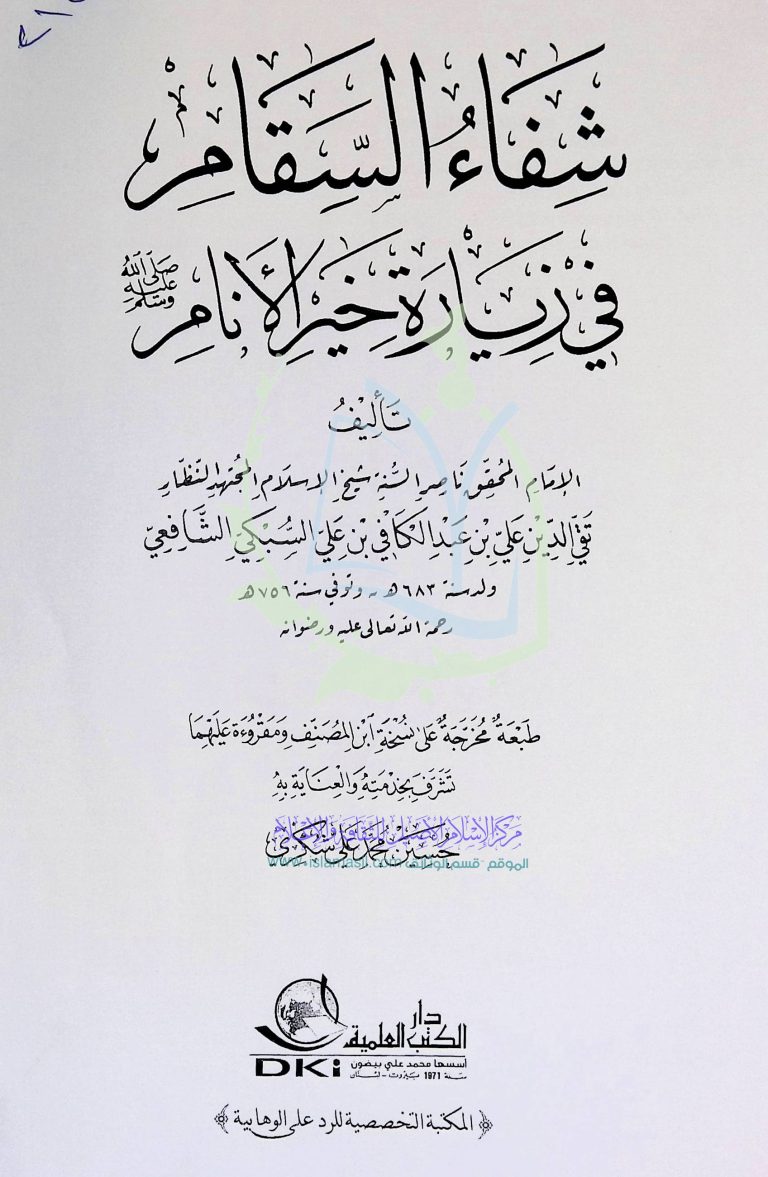 شِفَاءُ السَّقَامِ
فِي زِيَارَةِ خَيْرِ الأَنَامِ صَلَّى اللهُ عَلَيْهِ وَسَلَّمَ
تَأْلِيْفُ
الإمَامِ المُحَقِّقِ نَاصِرِ السُّنَّةِ شَيْخِ الإِسْلَامِ المُجْتَهِدِ النَّظَّارِ
تَقِيِّ الدِّيْنِ عَلِيِّ بْنِ عَبْدِ الكَافِي بْنِ عَلِيٍّ السُّبْكِيِّ الشَّافِعِيِّ
ولد سنة ٦٨٣ هـ وتوفي سنة ٧٥٦ هـ
رحمة الله تعالى عليه ورضوانه
طَبْعَةٌ مُخَرَّجَةٌ عَلَى نُسْخَةِ ابْنِ المُصَنِّفِ وَمَقْرُوءَة عَلَيْهِمَا
تَشَرَّفَ بِخِدْمَتِهِ وَالعِنَايَةِ بِهِ
مركز الإسلام الأصيل للثقافة والإعلام
حُسَيْن مُحَمَّد عَلِي شُكْرِي
الموقع - قسم الوثائق www.islamasil.com
دار
الكتب العلمية
DKi أسسها محمد علي بيضون
سنة 1971 بيروت - لبنان
المكتبة التخصصية للرد على الوهابية